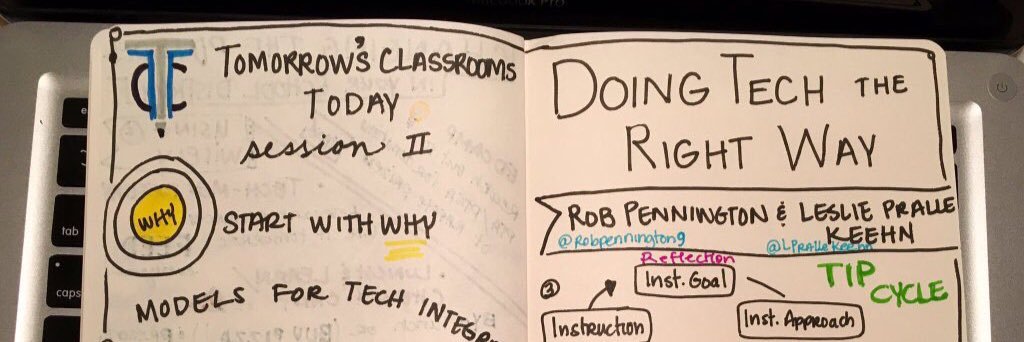 TOMORROW'S CLASSROOMS
TODAY
session II
WHY
START WITH WHY
MODELS FOR TECH
DOING TECH THE
RIGHT WAY
ROB PENNINGTON & LESLIE PRALLE
KEEHN
@Robpennington9
@LPralleKeehn
Reflection
TIP
CYCLE
Inst. Goal
Instruction
Inst. Approach
tab
caps